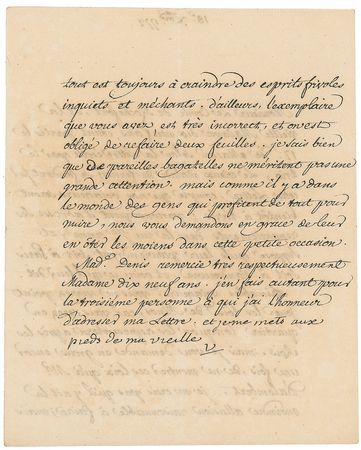 tout est toujours à craindre des esprits frivoles
inquiets et méchants. d'ailleurs, l'exemplaire
que vous avez, est très incorrect, et on est
obligé de refaire deux feuilles. je sais bien
que de pareilles bagatelles ne méritent pas une
grande attention. mais comme il y a dans
le monde des gens qui profitent de tout pour
nuire, nous vous demandons en grace de leur
en ôter les moiens dans cette petite occasion.
Made. Denis remercie très respectueusement
Madame dix neuf ans. j'en fais autant pour
la troisième personne à qui j'ai l'honneur
d'adresser ma Lettre. et je me mets aux
pieds de ma vieille
V